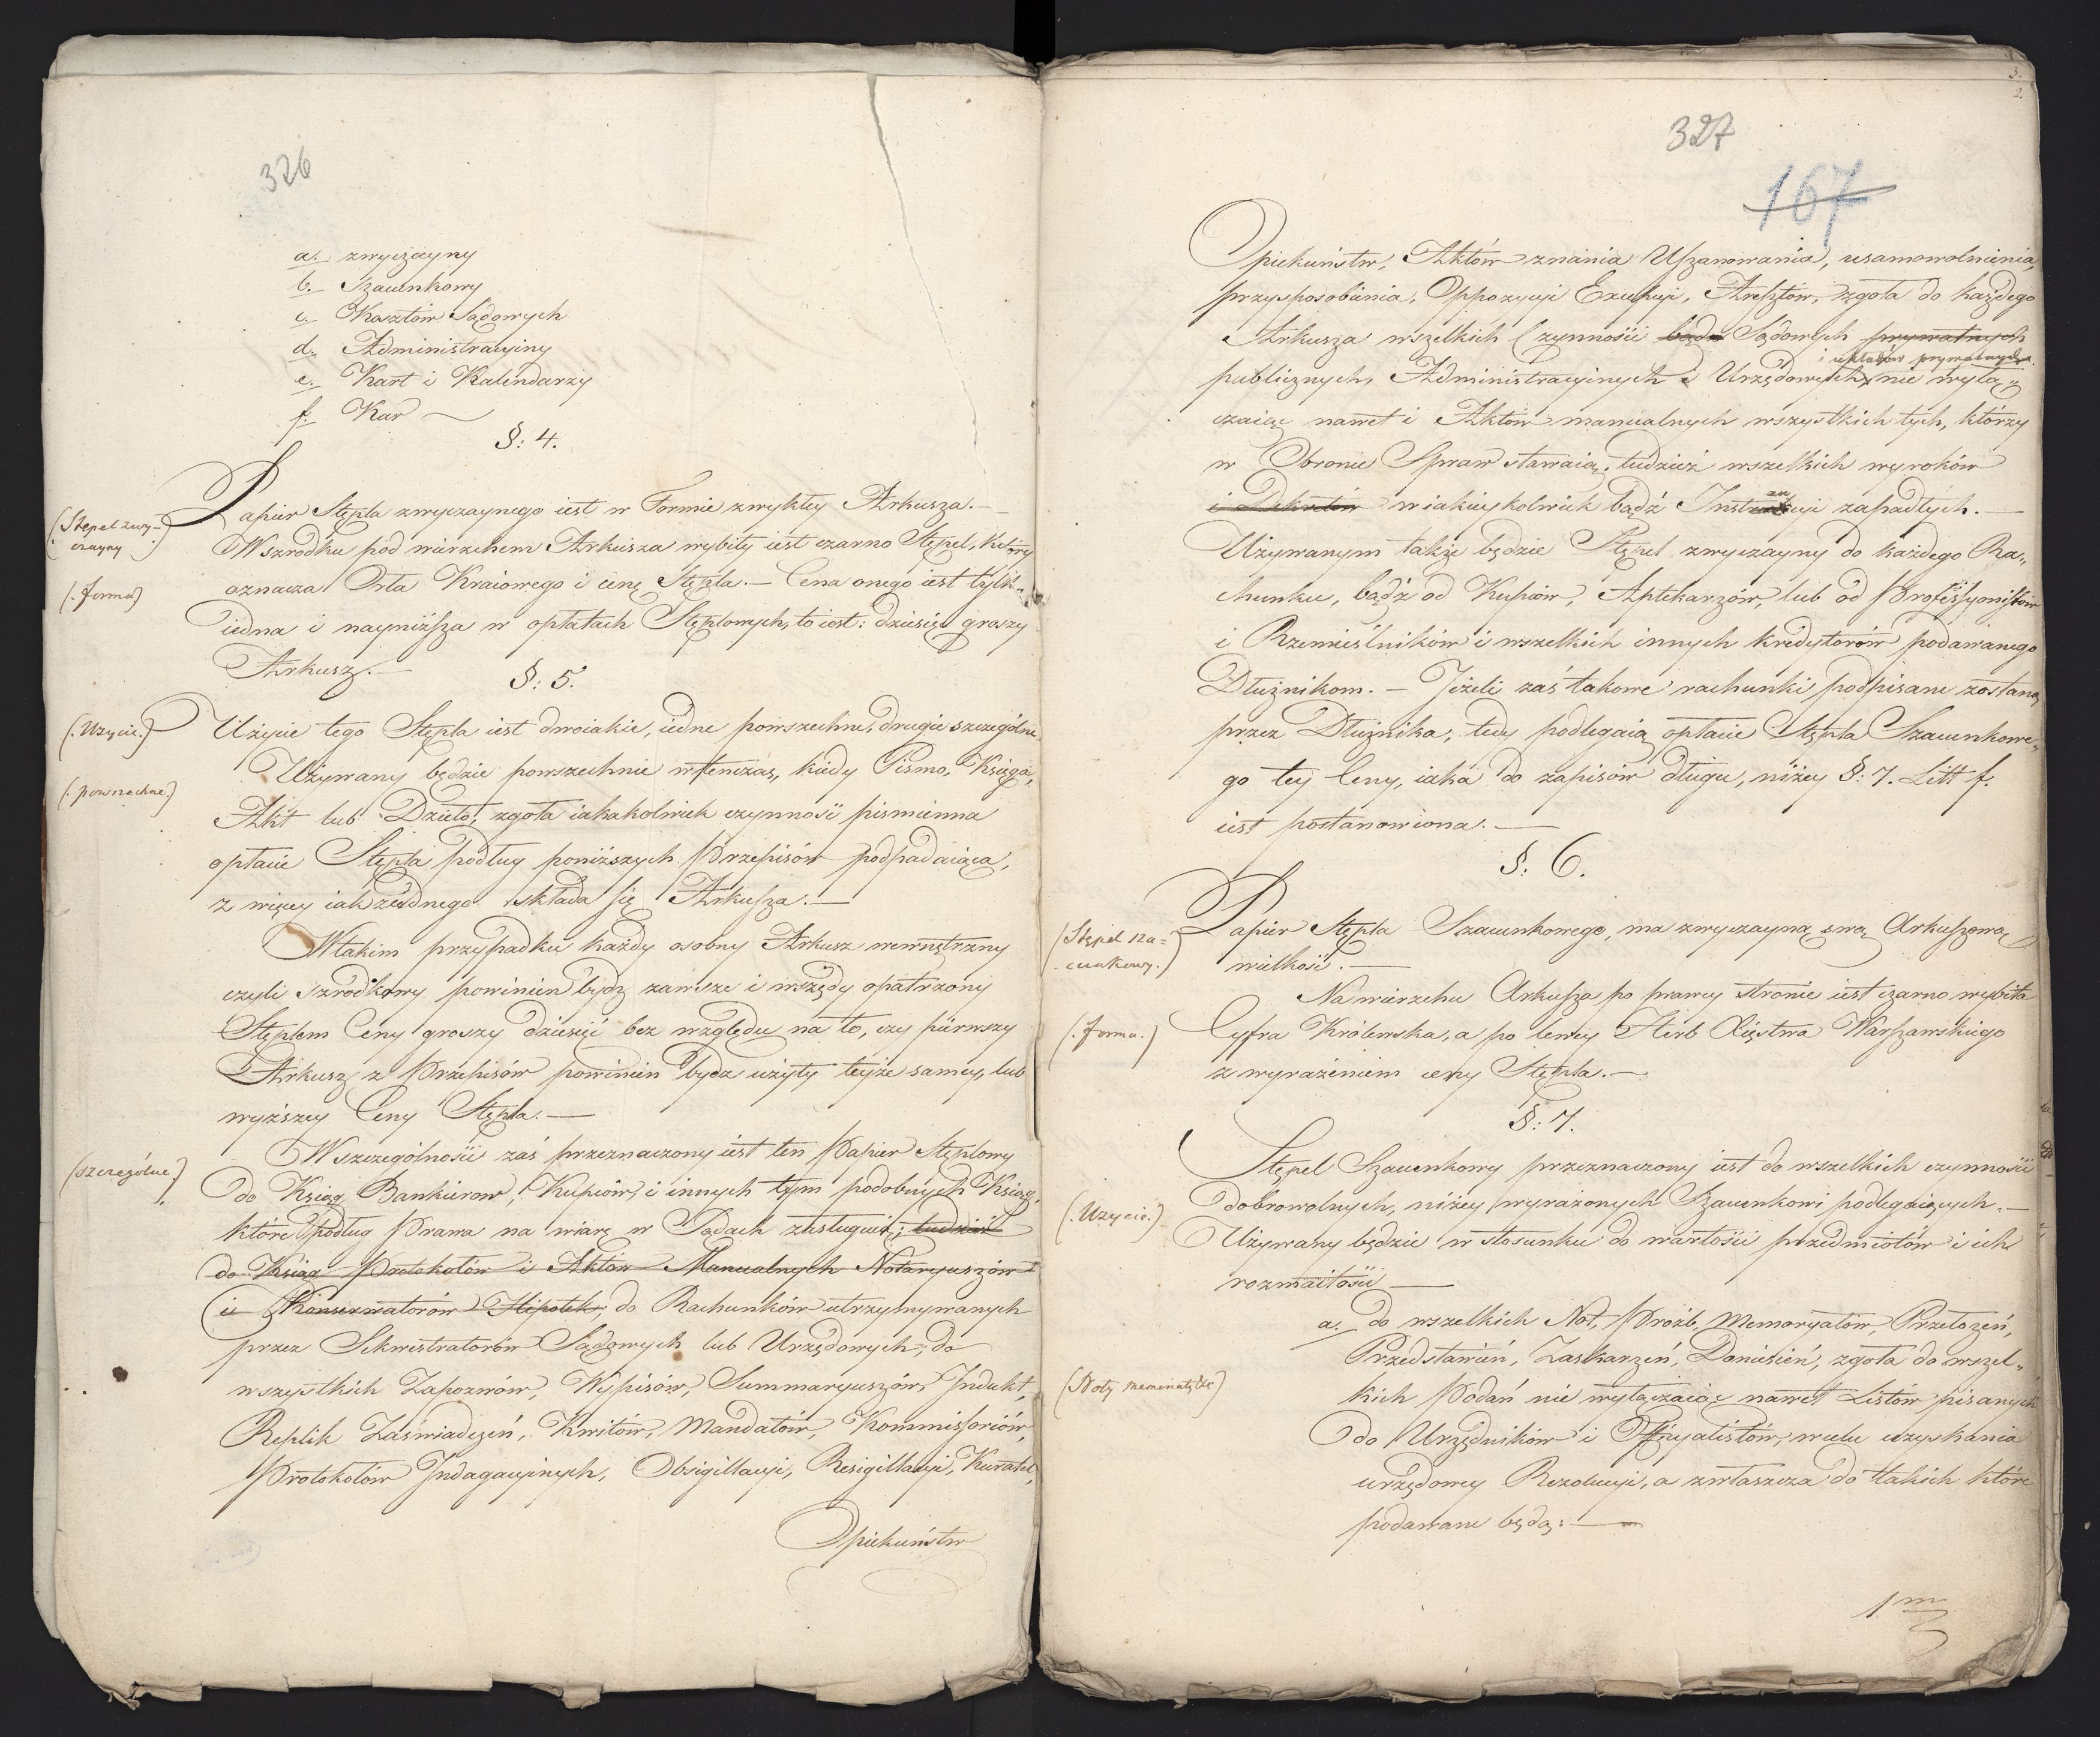 326
a. zwyczayny
b. Szacunkowy
c. Kosztów Sądowych
d. Administracyiny
e. Kart i Kalendarzy
f. Kar
§: 4.
(Stępel zwy-
czayny)
Papier Stępla zwyczaynego iest w Formie zwykłey Arkusza. —
W szrodku pod wierzchem Arkusza wybity iest czarno Stępel, który
(: forma)
oznacza Orła Kraiowego i cenę Stępla. — Cena onego iest tylko
iedna i nayniższa w opłatach Stęplowych, to iest: dziesięć groszy
Arkusz. —
§: 5.
(: Użycie:)
Użycie tego Stępla iest dwoiakie, iedne powszechne, drugie szczególne
Używany będzie powszechnie wtenczas, kiedy Pismo, Księga,
(: powszechne:)
Akt lub Dzieło, zgoła iakakolwiek czynność pismienna
opłacie Stępla podług poniższych Przepisów podpadaiąca,
z więcey iak z iednego składa się Arkusza. —
W takim przypadku każdy osobny Arkusz wewnętrzny
czyli szrodkowy powinien bydz zawsze i wszędy opatrzony
Stęplem Ceny groszy dziesięć bez względu na to, czy pierwszy
Arkusz z Przepisów powinien bydz użyty teyże samey, lub
wyższey Ceny Stępla. —
W szczególności zaś przeznaczony iest ten Papier Stęplowy
(szczególne:)
do Ksiąg Bankierow, Kupców, i innych tym podobnych Ksiąg,
które podług Prawa na wiarę w Sądach zasługuią; tudzież
do Ksiąg Protokołów i Aktów Manualnych Notaryuszów
i Konserwatorów Hipotek, do Rachunków utrzymywanych
przez Sekwestratorów Sądowych lub Urzędowych, do
wszystkich Zapozwów, Wypisów, Summaryuszów, Indukt,
Replik Zaświadczeń, Kwitów, Mandatów, Kommissoriów,
Protokołów Indagacyinych, Obsigillacyi, Resigillacyi, Kuratel,
Opiekuństw
327
167
Opiekuństw, Aktów znania Uszanowania, usamowolnienia,
przysposobienia, Oppozycyi Exekucyi, Aresztów, zgoła do każdego
Arkusza wszelkich Czynności bądź Sądowych prywatnych
i układów prywatnych
publicznych, Administracyinych i Urzędowych nie wyłą-
czaiąc nawet i Aktów manualnych wszystkich tych, którzy
w Obronie Spraw stawaią, tudzież wszelkich wyroków
i Dekretów w iakieykolwiek bądź Instancyi zapadłych. —
Używanym także będzie Stępel zwyczayny do każdego Ra-
chunku, bądź od Kupców, Aptekarzów, lub od Professyonistów
i Rzemieślników i wszelkich innych kredytorów podawanego
Dłużnikom. — Jeżeli zaś takowe rachunki podpisane zostaną
przez Dłużnika, tedy podlegaią opłacie Stępla Szacunkowe-
go tey Ceny, iaka do zapisów długu, niżey §: 7. Litt f.
iest postanowiona. —
§: 6.
(Stępel sza-
cunkowy.)
Papier Stępla Szacunkowego, ma zwyczayną swą Arkuszową
wielkość. —
Na wierzchu Arkusza po prawey stronie iest czarno wybita
(: forma.)
Cyfra Królewska, a po lewey Herb Xięstwa Warszawskiego
z wyrażeniem ceny Stępla. —
§: 7.
Stępel Szacunkowy przeznaczony iest do wszelkich czynności
(: Użycie.)
dobrowolnych, niżey wyrażonych Szacunkowi podlegaiących. —
Używany będzie w stosunku do wartości przedmiotów i ich
rozmaitości —
a. do wszelkich Not, Prożb, Memoryałów, Przełożeń,
Przedstawień, Zaskarżeń, Doniesień, zgoła do wszel-
(Noty)
kich Podań nie wyłączaiąc nawet Listow pisanych
do Urzędników i Officyalistów, w celu uzyskania
urzędowey Rezolucyi, a zwłaszcza do takich które
podawane będą: —